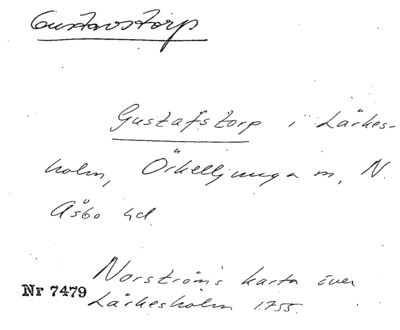 Gustavstorp
Gustafstorp i Lärkes-
holm, Örkelljunga m, N.
Åsbo hd.
Norströms karta över
Nr 7479
Lärkesholm 1755.